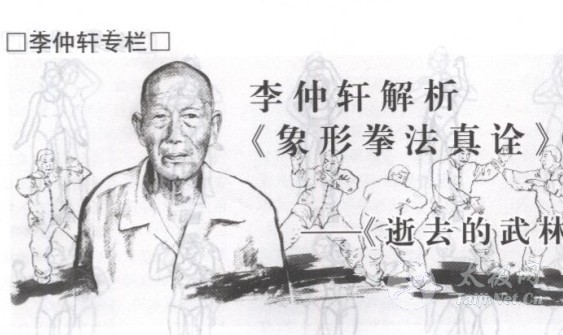 □李仲轩专栏□
李仲轩解析
《象形拳法真诠》
——《逝去的武林
太极网